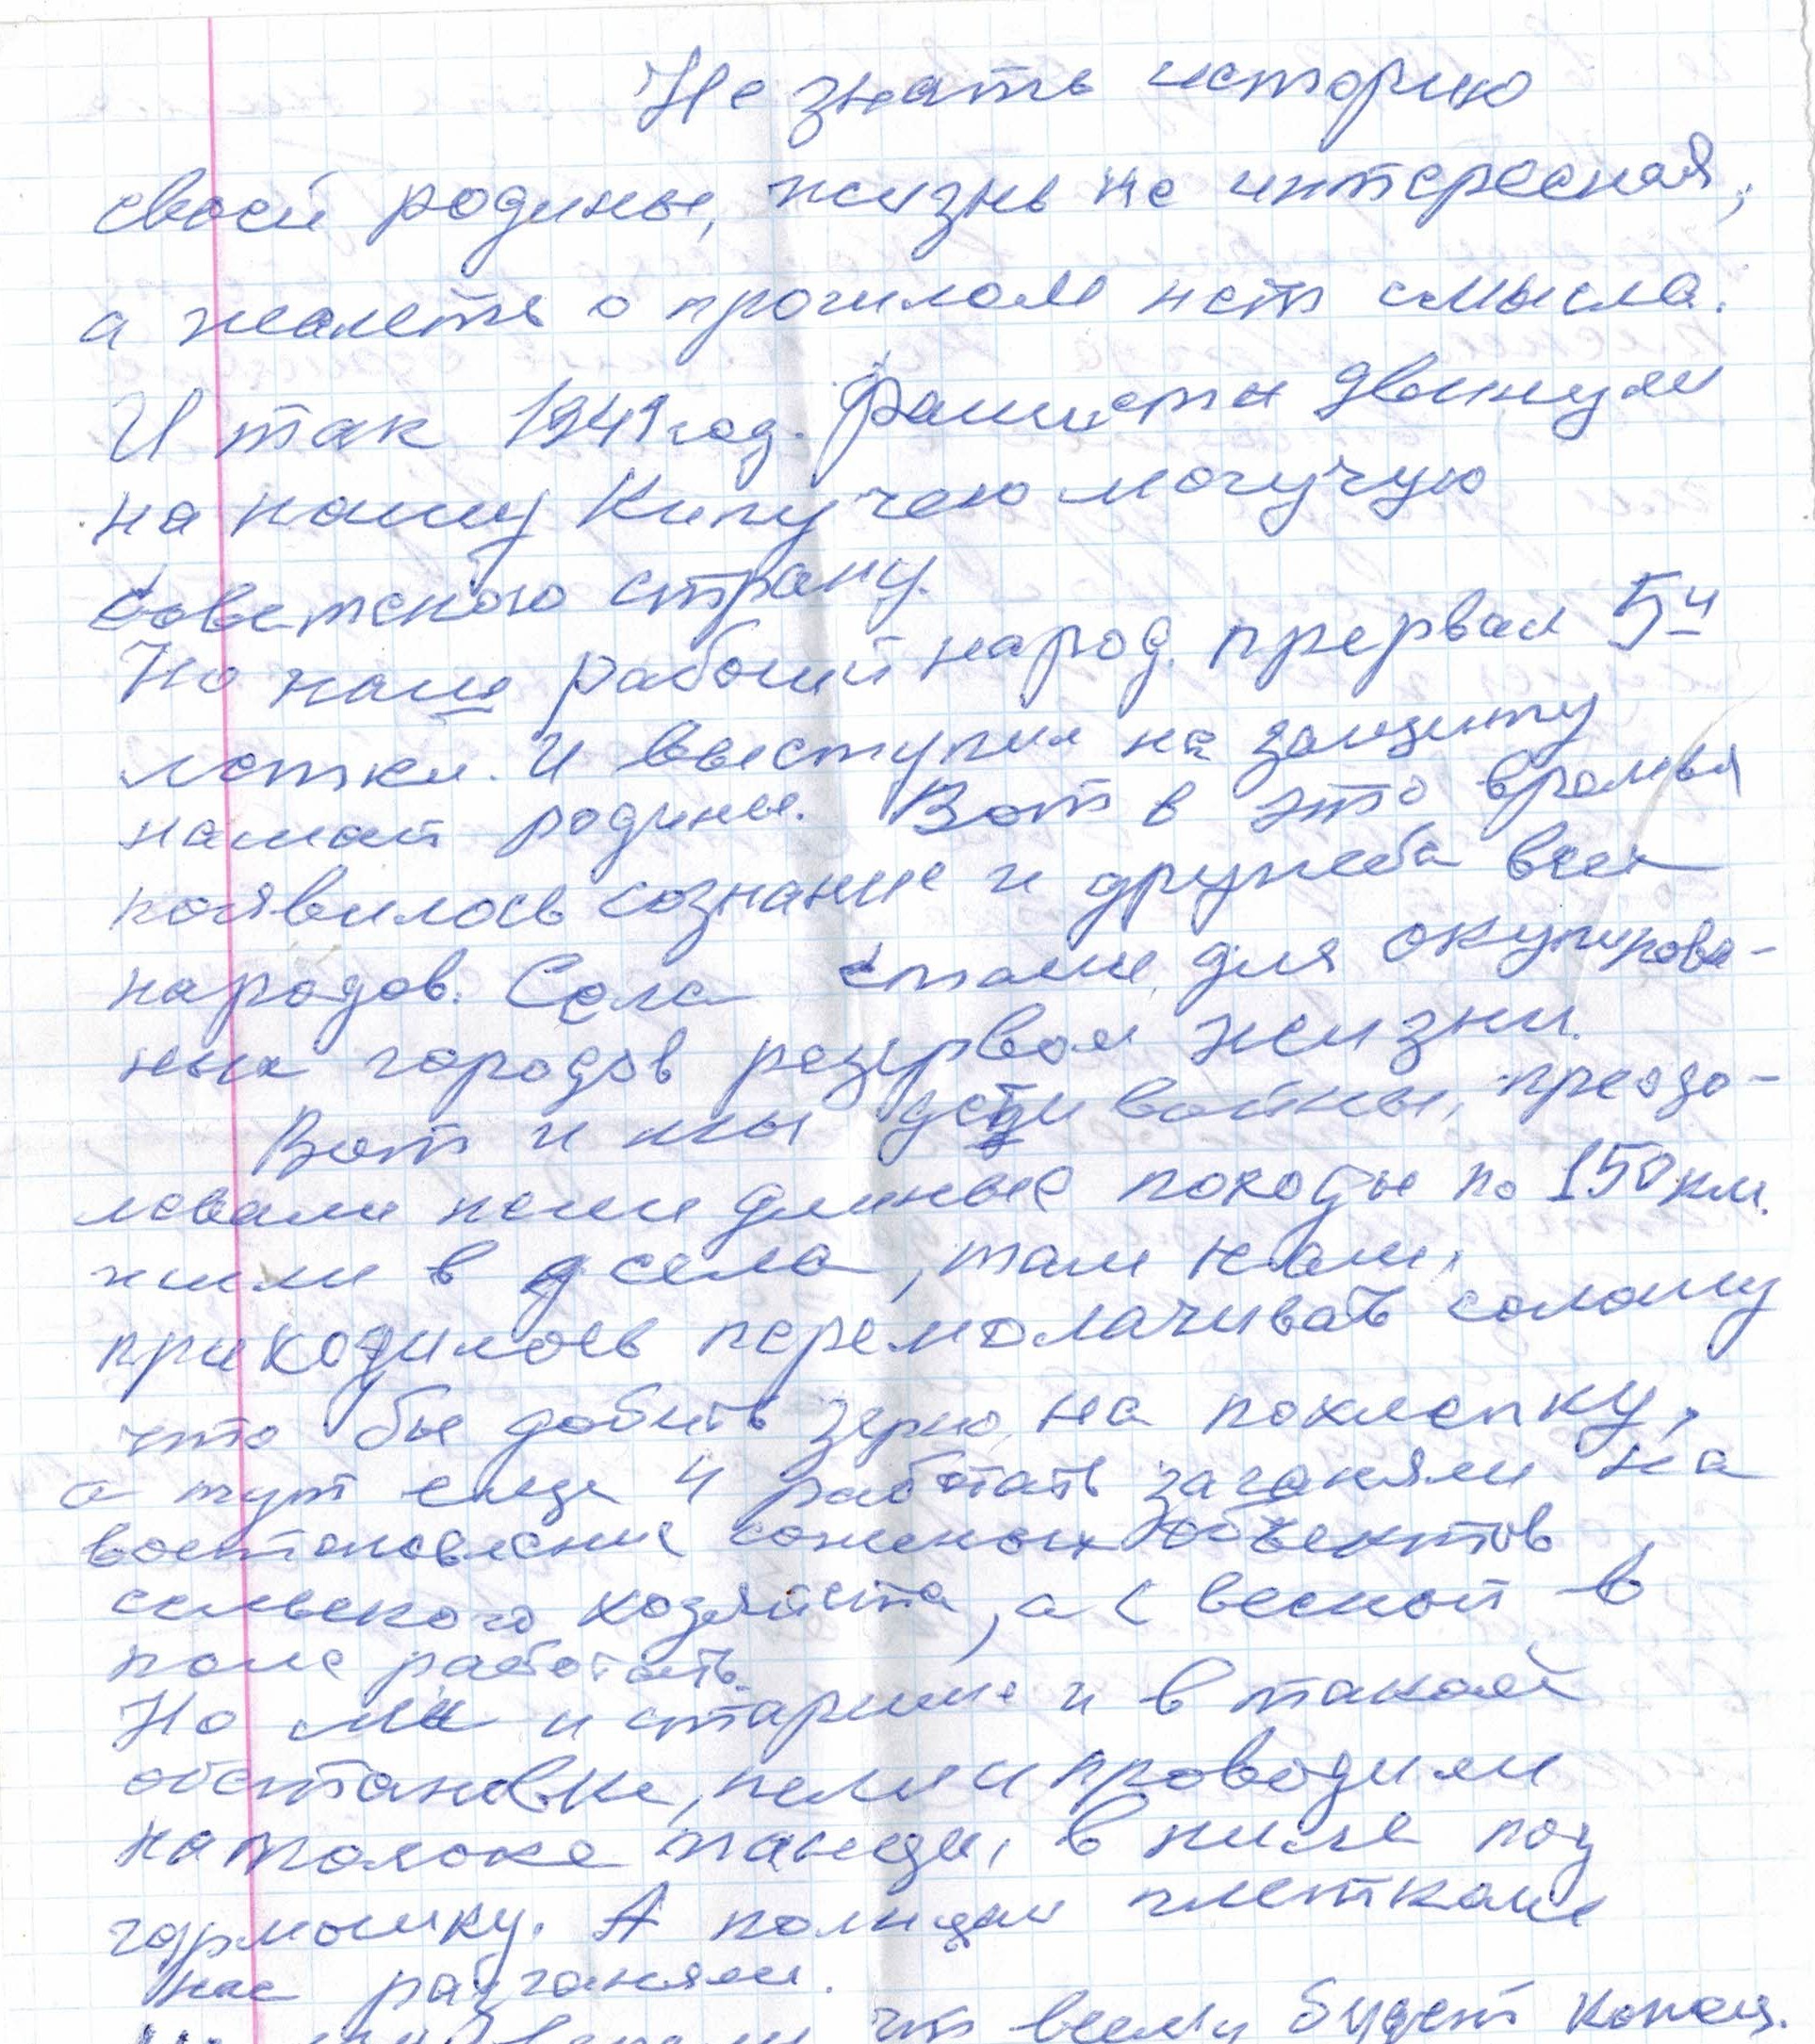 Не знать историю
своей родины, жизнь не интересная,
а жалеть о прошлом нет смысла.
И так 1941 год. Фашисты двинули
на нашу Кипучею могучую
советскою страну.
Но наш рабочий народ. прервал 5и
летки. И выступил на защиту
нашей родины. Вот в это времья
появилось сознание и дружба всех
народов. Села стали для окупирова-
ных городов резервом жизни.
Вот и мы дети войны, преодо-
левали пеши длиные походы по 150 км.
жили в села, там нам,
приходилось перемолачивать солому
что бы добыть зерно на похлепку,
а тут еще и работать заганяли на
востановление соженых объектов
сельского хозяйста, а с весной в
поле работать.
Но мы и старшие и в такой
обстановке, пели и проводили
на толоке танцы, в ниле под
гармошку. А полицаи плетками
нас разганяли.
что всему будет конец.